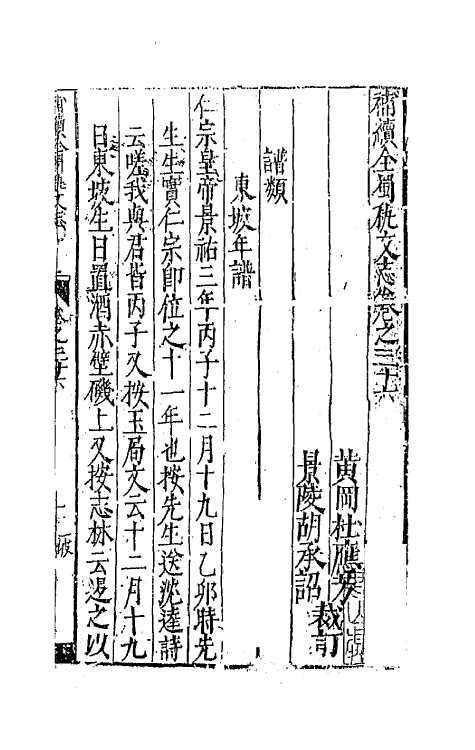 補續全蜀秇文志卷之三十六
黃岡杜應芳
景陵胡承詔
裁訂
譜類
東坡年譜
仁宗皇帝景祐三年丙子十二月十九日乙卯時先
生生實仁宗即位之十一年也按先生送沈逵詩
云嗟我與君皆丙子又按玉局文云十二月十九
日東坡生日置酒赤壁磯上又按志林云退之以
卷之三十六
一